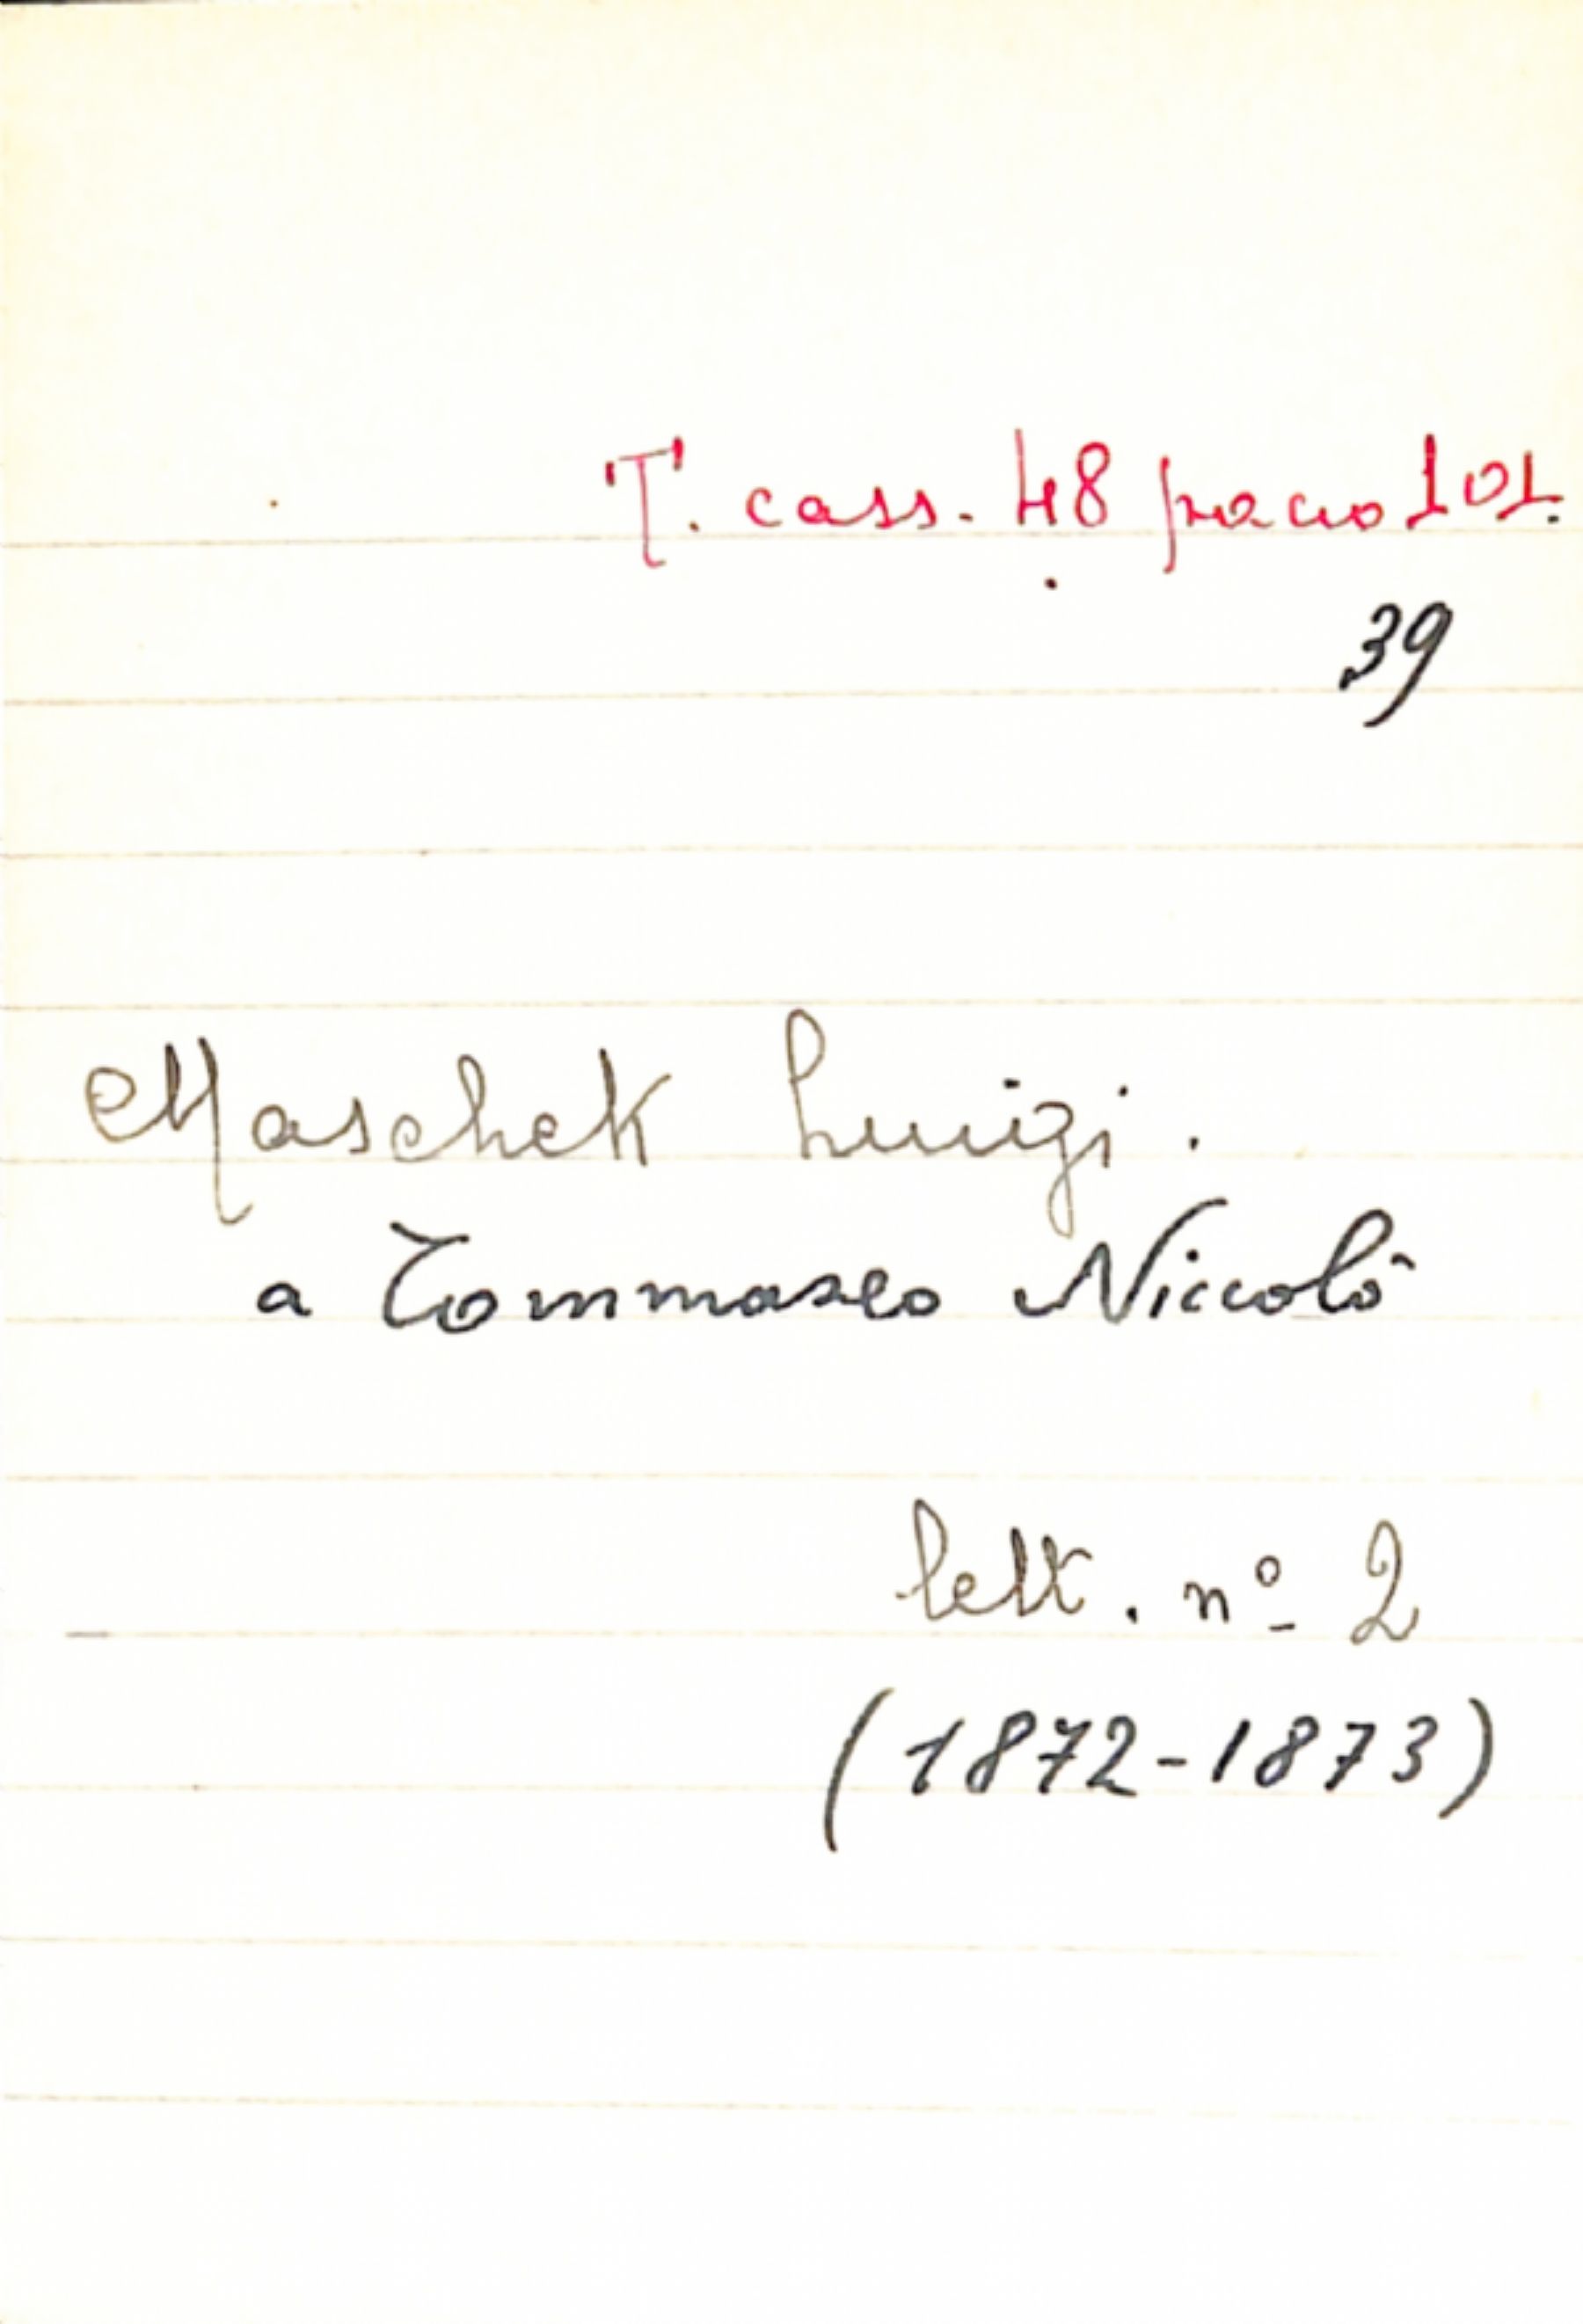 T. cass. 48 pacco 101.
39
Maschek Luigi.
a Tommaseo Niccolò
lett. nº 2
(1872-1873)